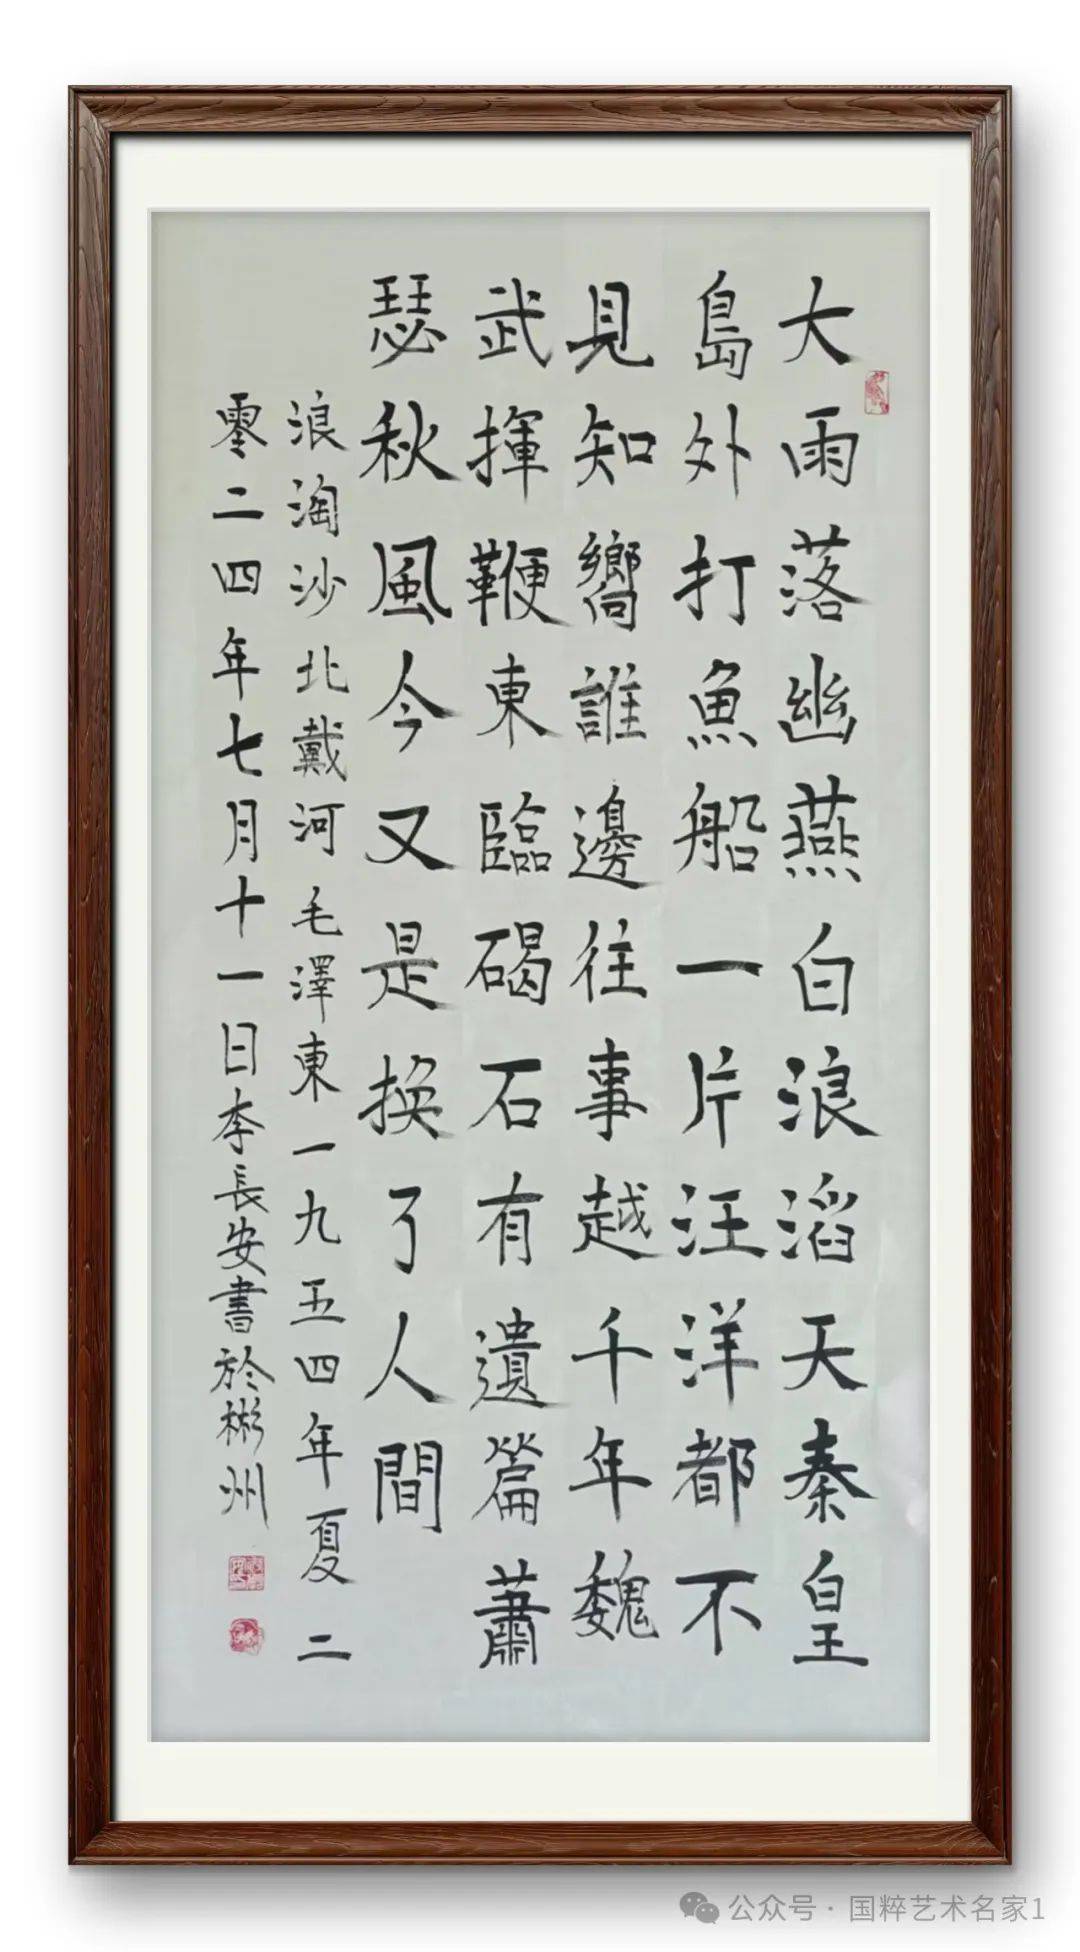 大雨落幽燕白浪滔天秦皇
島外打魚船一片汪洋都不
見知嚮誰邊往事越千年魏
武揮鞭東臨碣石有遺篇蕭
瑟秋風今又是换了人間
浪淘沙北戴河毛澤東一九五四年夏二
零二四年七月十一日李長安書於彬州
公众号·国粹艺术名家1